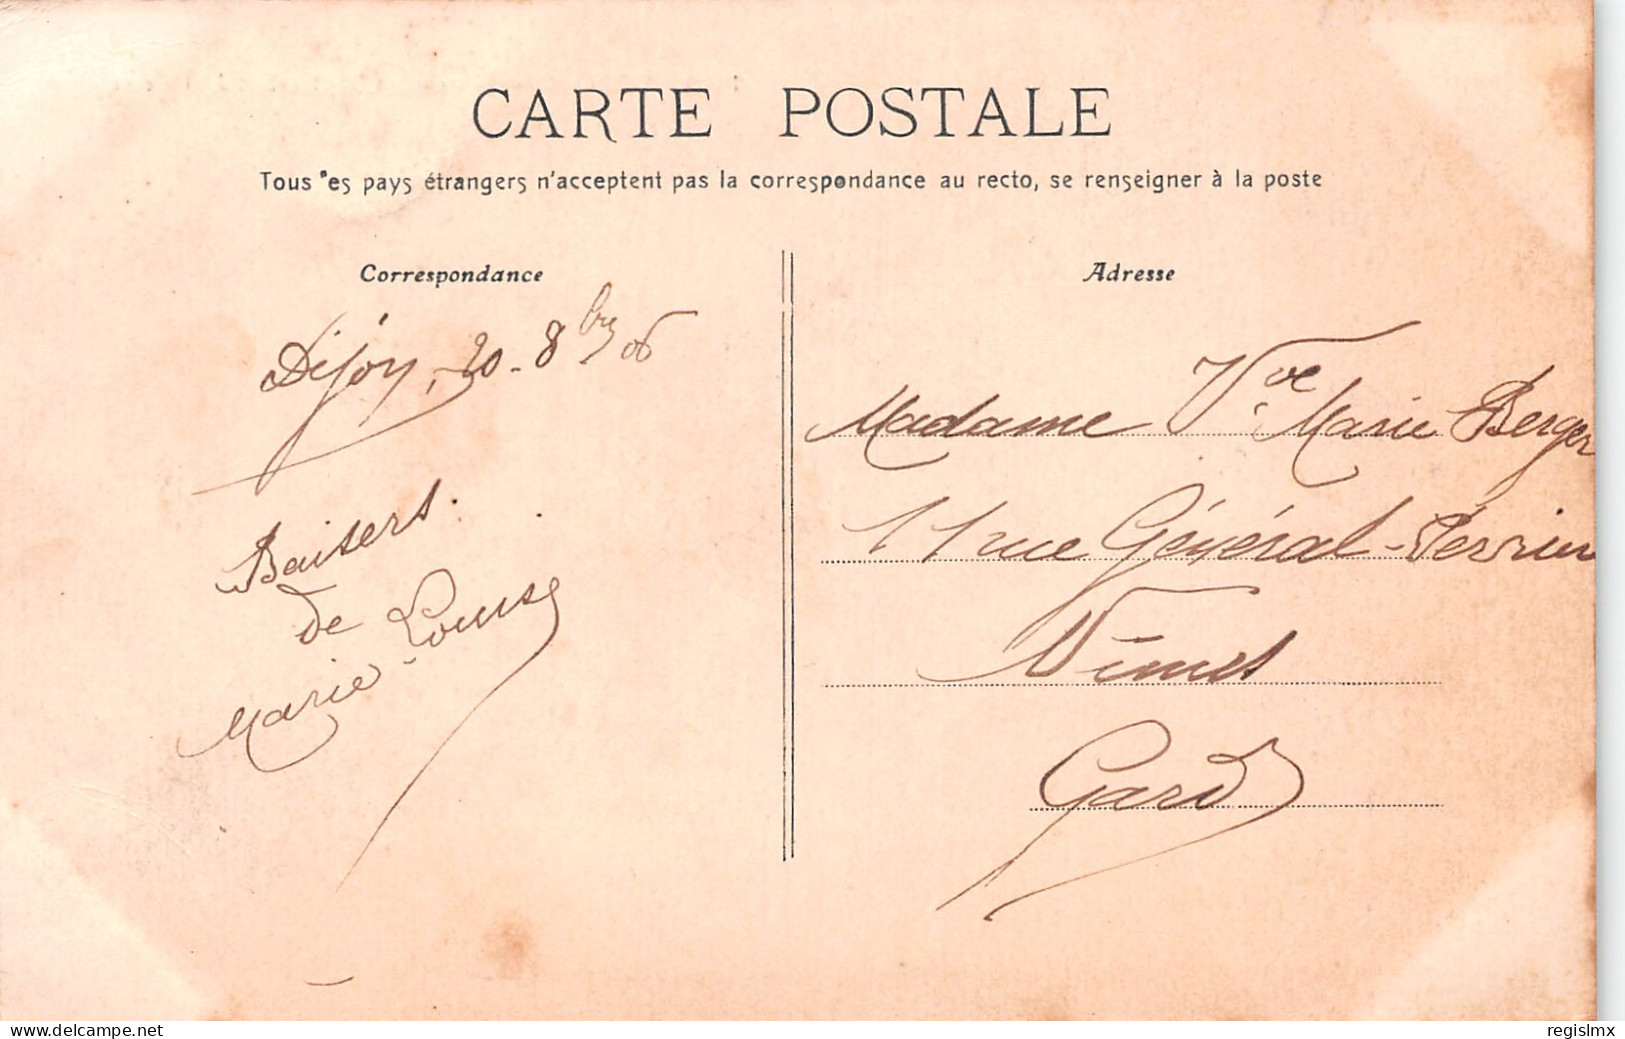 CARTE POSTALE
Tous les pays étrangers n'acceptent pas la correspondance au recto, se renseigner à la poste
Correspondance
Dijon, 20-8bre 06
Baisers.
de
Marie-Louise
Adresse
Madame Vve Marie Berger
11 rue Général-Perrier
Nîmes
Gard
www.delcampe.net
regislmx